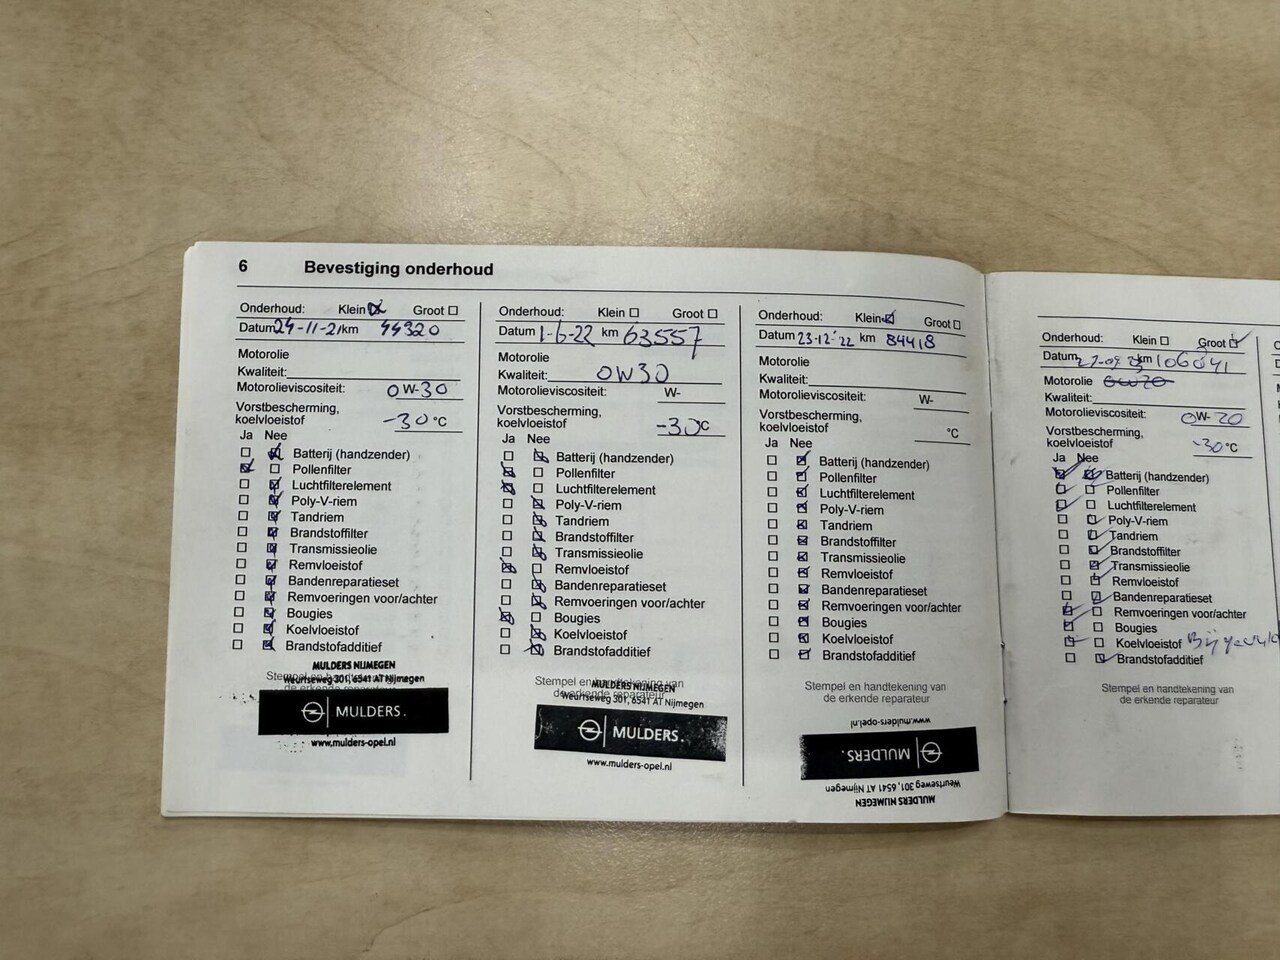 6 Bevestiging onderhoud
Onderhoud: Klein Groot
Datum 24-11-21 km 44320
Motorolie
Kwaliteit:
Motorolieviscositeit: 0W-30
Vorstbescherming,
koelvloeistof -30°C
Ja Nee
Batterij (handzender)
Pollenfilter
Luchtfilterelement
Poly-V-riem
Tandriem
Brandstoffilter
Transmissieolie
Remvloeistof
Bandenreparatieset
Remvoeringen voor/achter
Bougies
Koelvloeistof
Brandstofadditief
MULDERS NIJMEGEN
Stempel en handtekening van
Weurtseweg 301, 6541 AT Nijmegen
de erkende reparateur
MULDERS.
www.mulders-opel.nl
Onderhoud: Klein Groot
Datum 1-6-22 km 63557
Motorolie
Kwaliteit: 0W30
Motorolieviscositeit: W-
Vorstbescherming,
koelvloeistof -30°C
Ja Nee
Batterij (handzender)
Pollenfilter
Luchtfilterelement
Poly-V-riem
Tandriem
Brandstoffilter
Transmissieolie
Remvloeistof
Bandenreparatieset
Remvoeringen voor/achter
Bougies
Koelvloeistof
Brandstofadditief
Stempel en handtekening van
MULDERS NIJMEGEN
de erkende reparateur
Weurtseweg 301, 6541 AT Nijmegen
MULDERS.
www.mulders-opel.nl
Onderhoud: Klein Groot
Datum 23-12-'22 km 84418
Motorolie
Kwaliteit:
Motorolieviscositeit: W-
Vorstbescherming,
koelvloeistof °C
Ja Nee
Batterij (handzender)
Pollenfilter
Luchtfilterelement
Poly-V-riem
Tandriem
Brandstoffilter
Transmissieolie
Remvloeistof
Bandenreparatieset
Remvoeringen voor/achter
Bougies
Koelvloeistof
Brandstofadditief
Stempel en handtekening van
de erkende reparateur
www.mulders-opel.nl
MULDERS.
Weurtseweg 301, 6541 AT Nijmegen
MULDERS NIJMEGEN
Onderhoud: Klein Groot
Datum km 106041
Motorolie 0W20
Kwaliteit:
Motorolieviscositeit: 0W-20
Vorstbescherming,
koelvloeistof -30°C
Ja Nee
Batterij (handzender)
Pollenfilter
Luchtfilterelement
Poly-V-riem
Tandriem
Brandstoffilter
Transmissieolie
Remvloeistof
Bandenreparatieset
Remvoeringen voor/achter
Bougies
Koelvloeistof
Brandstofadditief
Stempel en handtekening van
de erkende reparateur